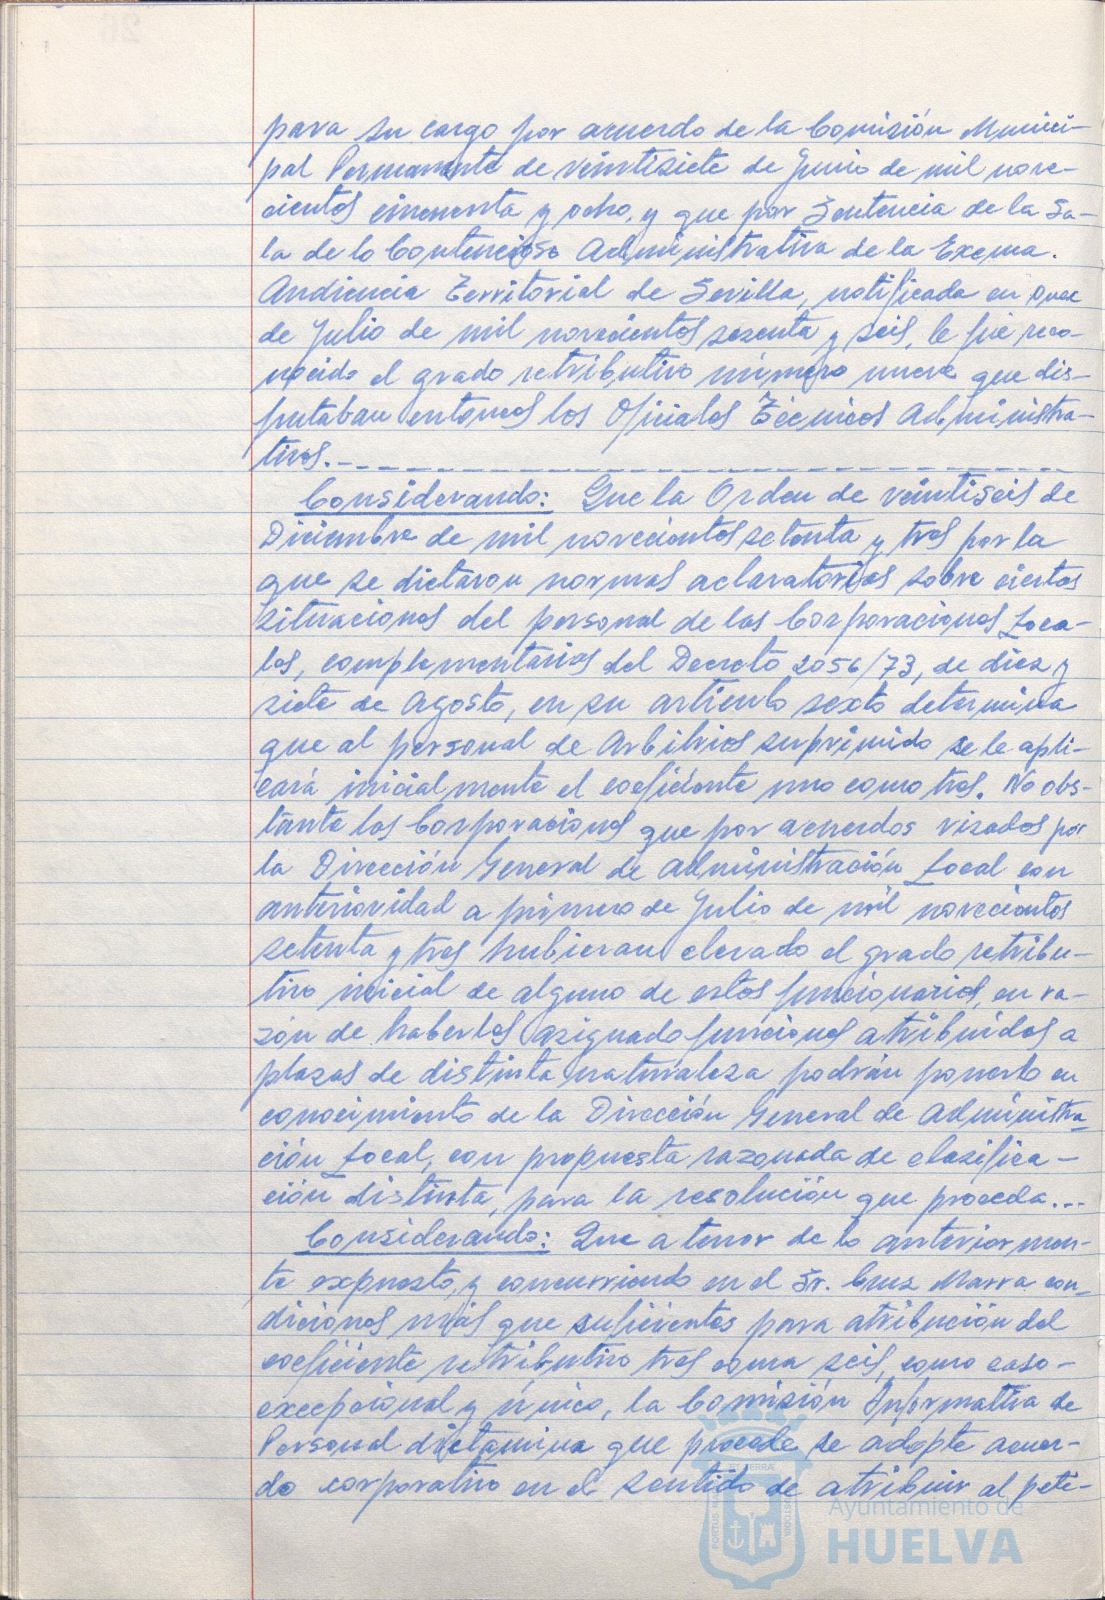 para su cargo por acuerdo de la Comisión Munici-
pal Permanente de veintisiete de Junio de mil nove-
cientos cincuenta y ocho, y que por Sentencia de la Sa-
la de lo Contencioso Administrativa de la Excma.
Audiencia Territorial de Sevilla, notificada en once
de Julio de mil novecientos sesenta y seis, le fué reco-
nocido el grado retributivo número nueve que dis-
putaban entonces los Oficiales Técnicos Administra-
tivos.-
Considerando: Que la Orden de veintiseis de
Diciembre de mil novecientos setenta y tres por la
que se dictaron normas aclaratorias sobre ciertas
situaciones del personal de las Corporaciones Loca-
les, complementarias del Decreto 2056/73, de diez y
siete de Agosto, en su articulo sexto determina
que al personal de Arbitrios suprimido se le apli-
cará inicialmente el coeficiente uno coma tres. No obs-
tante las Corporaciones que por acuerdos visados por
la Dirección General de Administración Local con
anterioridad a primero de Julio de mil novecientos
setenta y tres hubieran elevado el grado retribu-
tivo inicial de alguno de estos funcionarios, en ra-
zón de haberles asignado funciones atribuidas a
plazas de distinta naturaleza podrán ponerlo en
conocimiento de la Dirección General de Administra-
ción Local, con propuesta razonada de clasifica-
ción distinta, para la resolución que proceda...
Considerando: Que a tenor de lo anteriormen-
te expuesto, y concurriendo en el Sr. Cruz Marra con-
diciones más que suficientes para atribución del
coeficiente retributivo tres coma seis, como caso-
excepcional y único, la Comisión Informativa de
Personal dictamina que procede se adopte acuer-
do corporativo en el sentido de atribuir al peti-
Ayuntamiento de
HUELVA